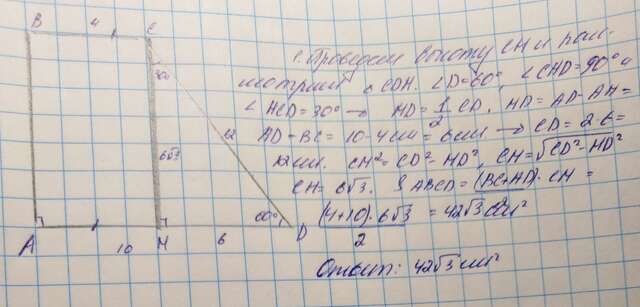 B 4 C
30°
12
6√3
60°
A 10 H 6 D
1. Проведем высоту CH и рас-
смотрим △CDH. ∠D=60°, ∠CHD=90° и
∠HCD=30° → HD=1/2 CD. HD=AD-AH=
AD-BC=10-4см=6см → CD=2·6=
12см. CH²=CD²-HD², CH=√CD²-HD²
CH=6√3. SABCD=(BC+AD)·CH=
(4+10)·6√3/2 = 42√3 см²
Ответ: 42√3 см²